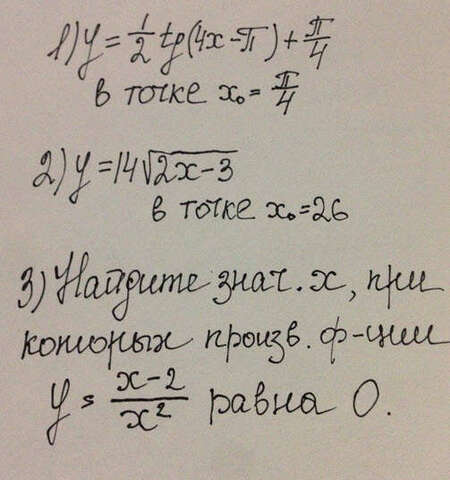 1) y = 1/2 tg(4x - π) + π/4
в точке x₀ = π/4
2) y = 14√(2x-3)
в точке x₀ = 26
3) Найдите знач. x, при
которых произв. ф-ции
y = (x-2)/x² равна 0.